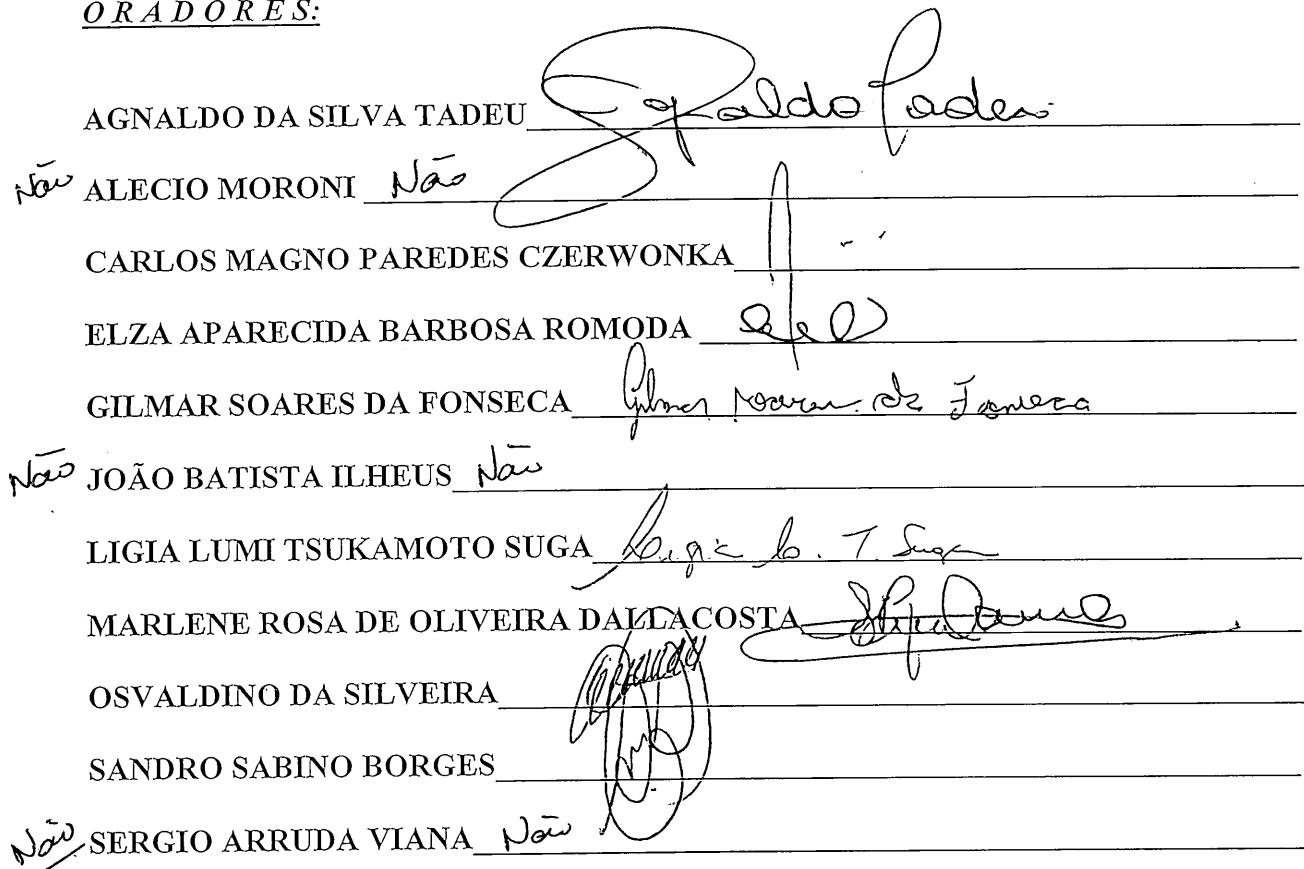 ORADORES:
AGNALDO DA SILVA TADEU Agnaldo Tadeu
Não ALECIO MORONI Não
CARLOS MAGNO PAREDES CZERWONKA
ELZA APARECIDA BARBOSA ROMODA
GILMAR SOARES DA FONSECA Gilmar Soares da Fonseca
Não JOÃO BATISTA ILHEUS Não
LIGIA LUMI TSUKAMOTO SUGA Ligia L. T. Suga
MARLENE ROSA DE OLIVEIRA DALLACOSTA
OSVALDINO DA SILVEIRA
SANDRO SABINO BORGES
Não SERGIO ARRUDA VIANA Não